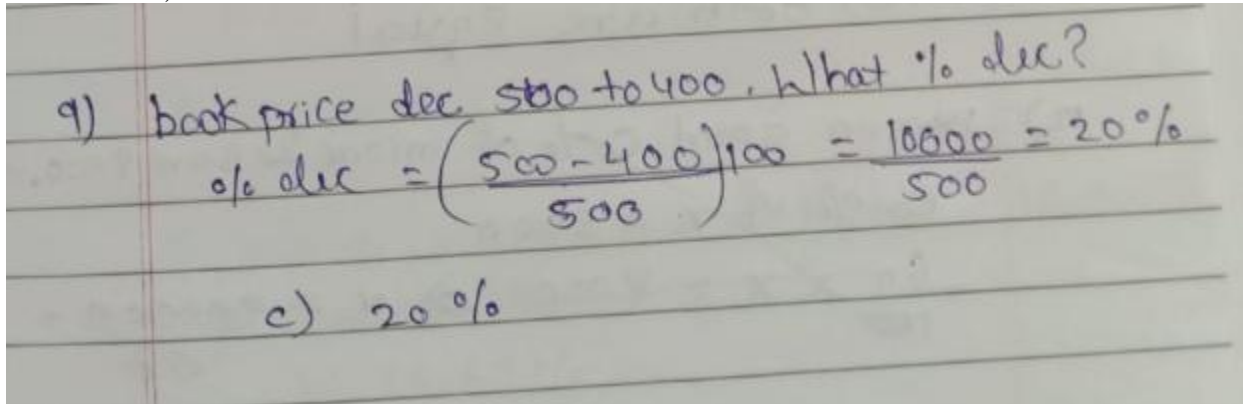 9) book price dec. 500 to 400. What % dec?
% dec = (500-400/500)100 = 10000/500 = 20%
c) 20%